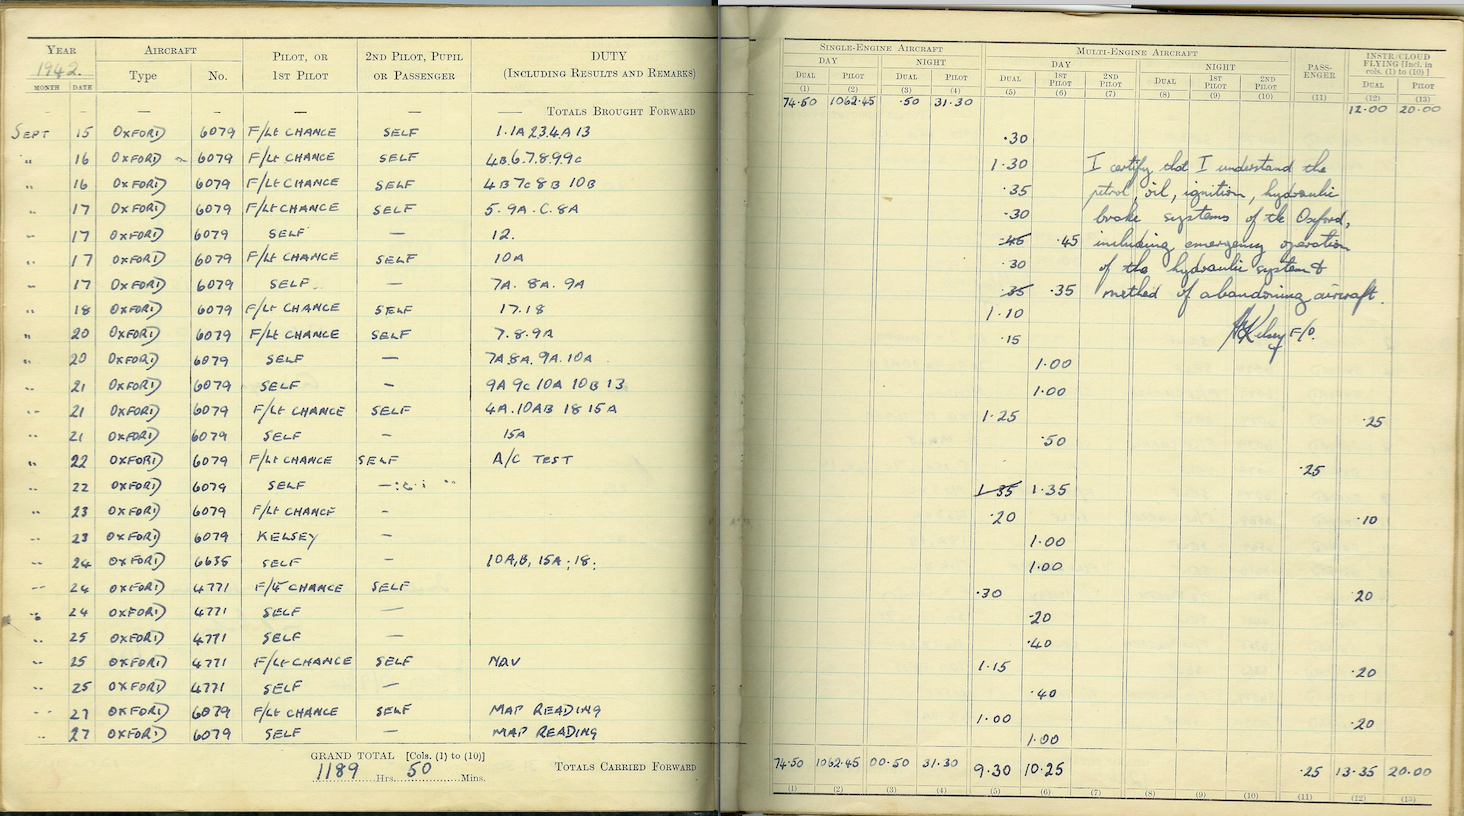 YEAR AIRCRAFT PILOT, OR 2ND PILOT, PUPIL DUTY
1942. Type No. 1ST PILOT OR PASSENGER (INCLUDING RESULTS AND REMARKS)
MONTH DATE
— — — — — — — TOTALS BROUGHT FORWARD
SEPT 15 OXFORD 6079 F/Lt CHANCE SELF 1.1A 2 3.4A 13
" 16 OXFORD 6079 F/Lt CHANCE SELF 4B.6.7.8.9.9c
" 16 OXFORD 6079 F/Lt CHANCE SELF 4B 7c 8B 10B
" 17 OXFORD 6079 F/Lt CHANCE SELF 5. 9A. C. 8A
" 17 OXFORD 6079 SELF — 12.
" 17 OXFORD 6079 F/Lt CHANCE SELF 10A
" 17 OXFORD 6079 SELF — 7A. 8A. 9A
" 18 OXFORD 6079 F/Lt CHANCE SELF 17.18
" 20 OXFORD 6079 F/Lt CHANCE SELF 7.8.9A
" 20 OXFORD 6079 SELF — 7A.8A.9A.10A
" 21 OXFORD 6079 SELF — 9A 9c 10A 10B 13
" 21 OXFORD 6079 F/Lt CHANCE SELF 4A.10AB 18 15A
" 21 OXFORD 6079 SELF — 15A
" 22 OXFORD 6079 F/Lt CHANCE SELF A/C TEST
" 22 OXFORD 6079 SELF —
" 23 OXFORD 6079 F/Lt CHANCE —
" 23 OXFORD 6079 KELSEY —
" 24 OXFORD 6635 SELF — 10A,B, 15A; 18;
" 24 OXFORD 4771 F/Lt CHANCE SELF
" 24 OXFORD 4771 SELF —
" 25 OXFORD 4771 SELF —
" 25 OXFORD 4771 F/Lt CHANCE SELF NAV
" 25 OXFORD 4771 SELF —
" 27 OXFORD 6079 F/Lt CHANCE SELF MAP READING
" 27 OXFORD 6079 SELF — MAP READING
GRAND TOTAL [Cols. (1) to (10)]
1189 Hrs. 50 Mins. TOTALS CARRIED FORWARD
SINGLE-ENGINE AIRCRAFT MULTI-ENGINE AIRCRAFT PASS-ENGER INSTR/CLOUD FLYING [Incl. in cols. (1) to (10)]
DAY NIGHT DAY NIGHT
DUAL PILOT DUAL PILOT DUAL 1ST PILOT 2ND PILOT DUAL 1ST PILOT 2ND PILOT DUAL PILOT
(1) (2) (3) (4) (5) (6) (7) (8) (9) (10) (11) (12) (13)
74.50 1062.45 .50 31.30 12.00 20.00
.30
1.30 I certify that I understand the
.35 petrol, oil, ignition, hydraulic
.30 brake systems of the Oxford,
.45 .45 including emergency operation
.30 of the hydraulic system &
.35 .35 method of abandoning aircraft.
1.10
.15 Kelsey F/O.
1.00
1.00
1.25 .25
.50
.25
1.35 1.35
.20 .10
1.00
1.00
.30 20
.20
.40
1.15 .20
.40
1.00 .20
1.00
74.50 1062.45 00.50 31.30 9.30 10.25 .25 13.35 20.00
(1) (2) (3) (4) (5) (6) (7) (8) (9) (10) (11) (12) (13)